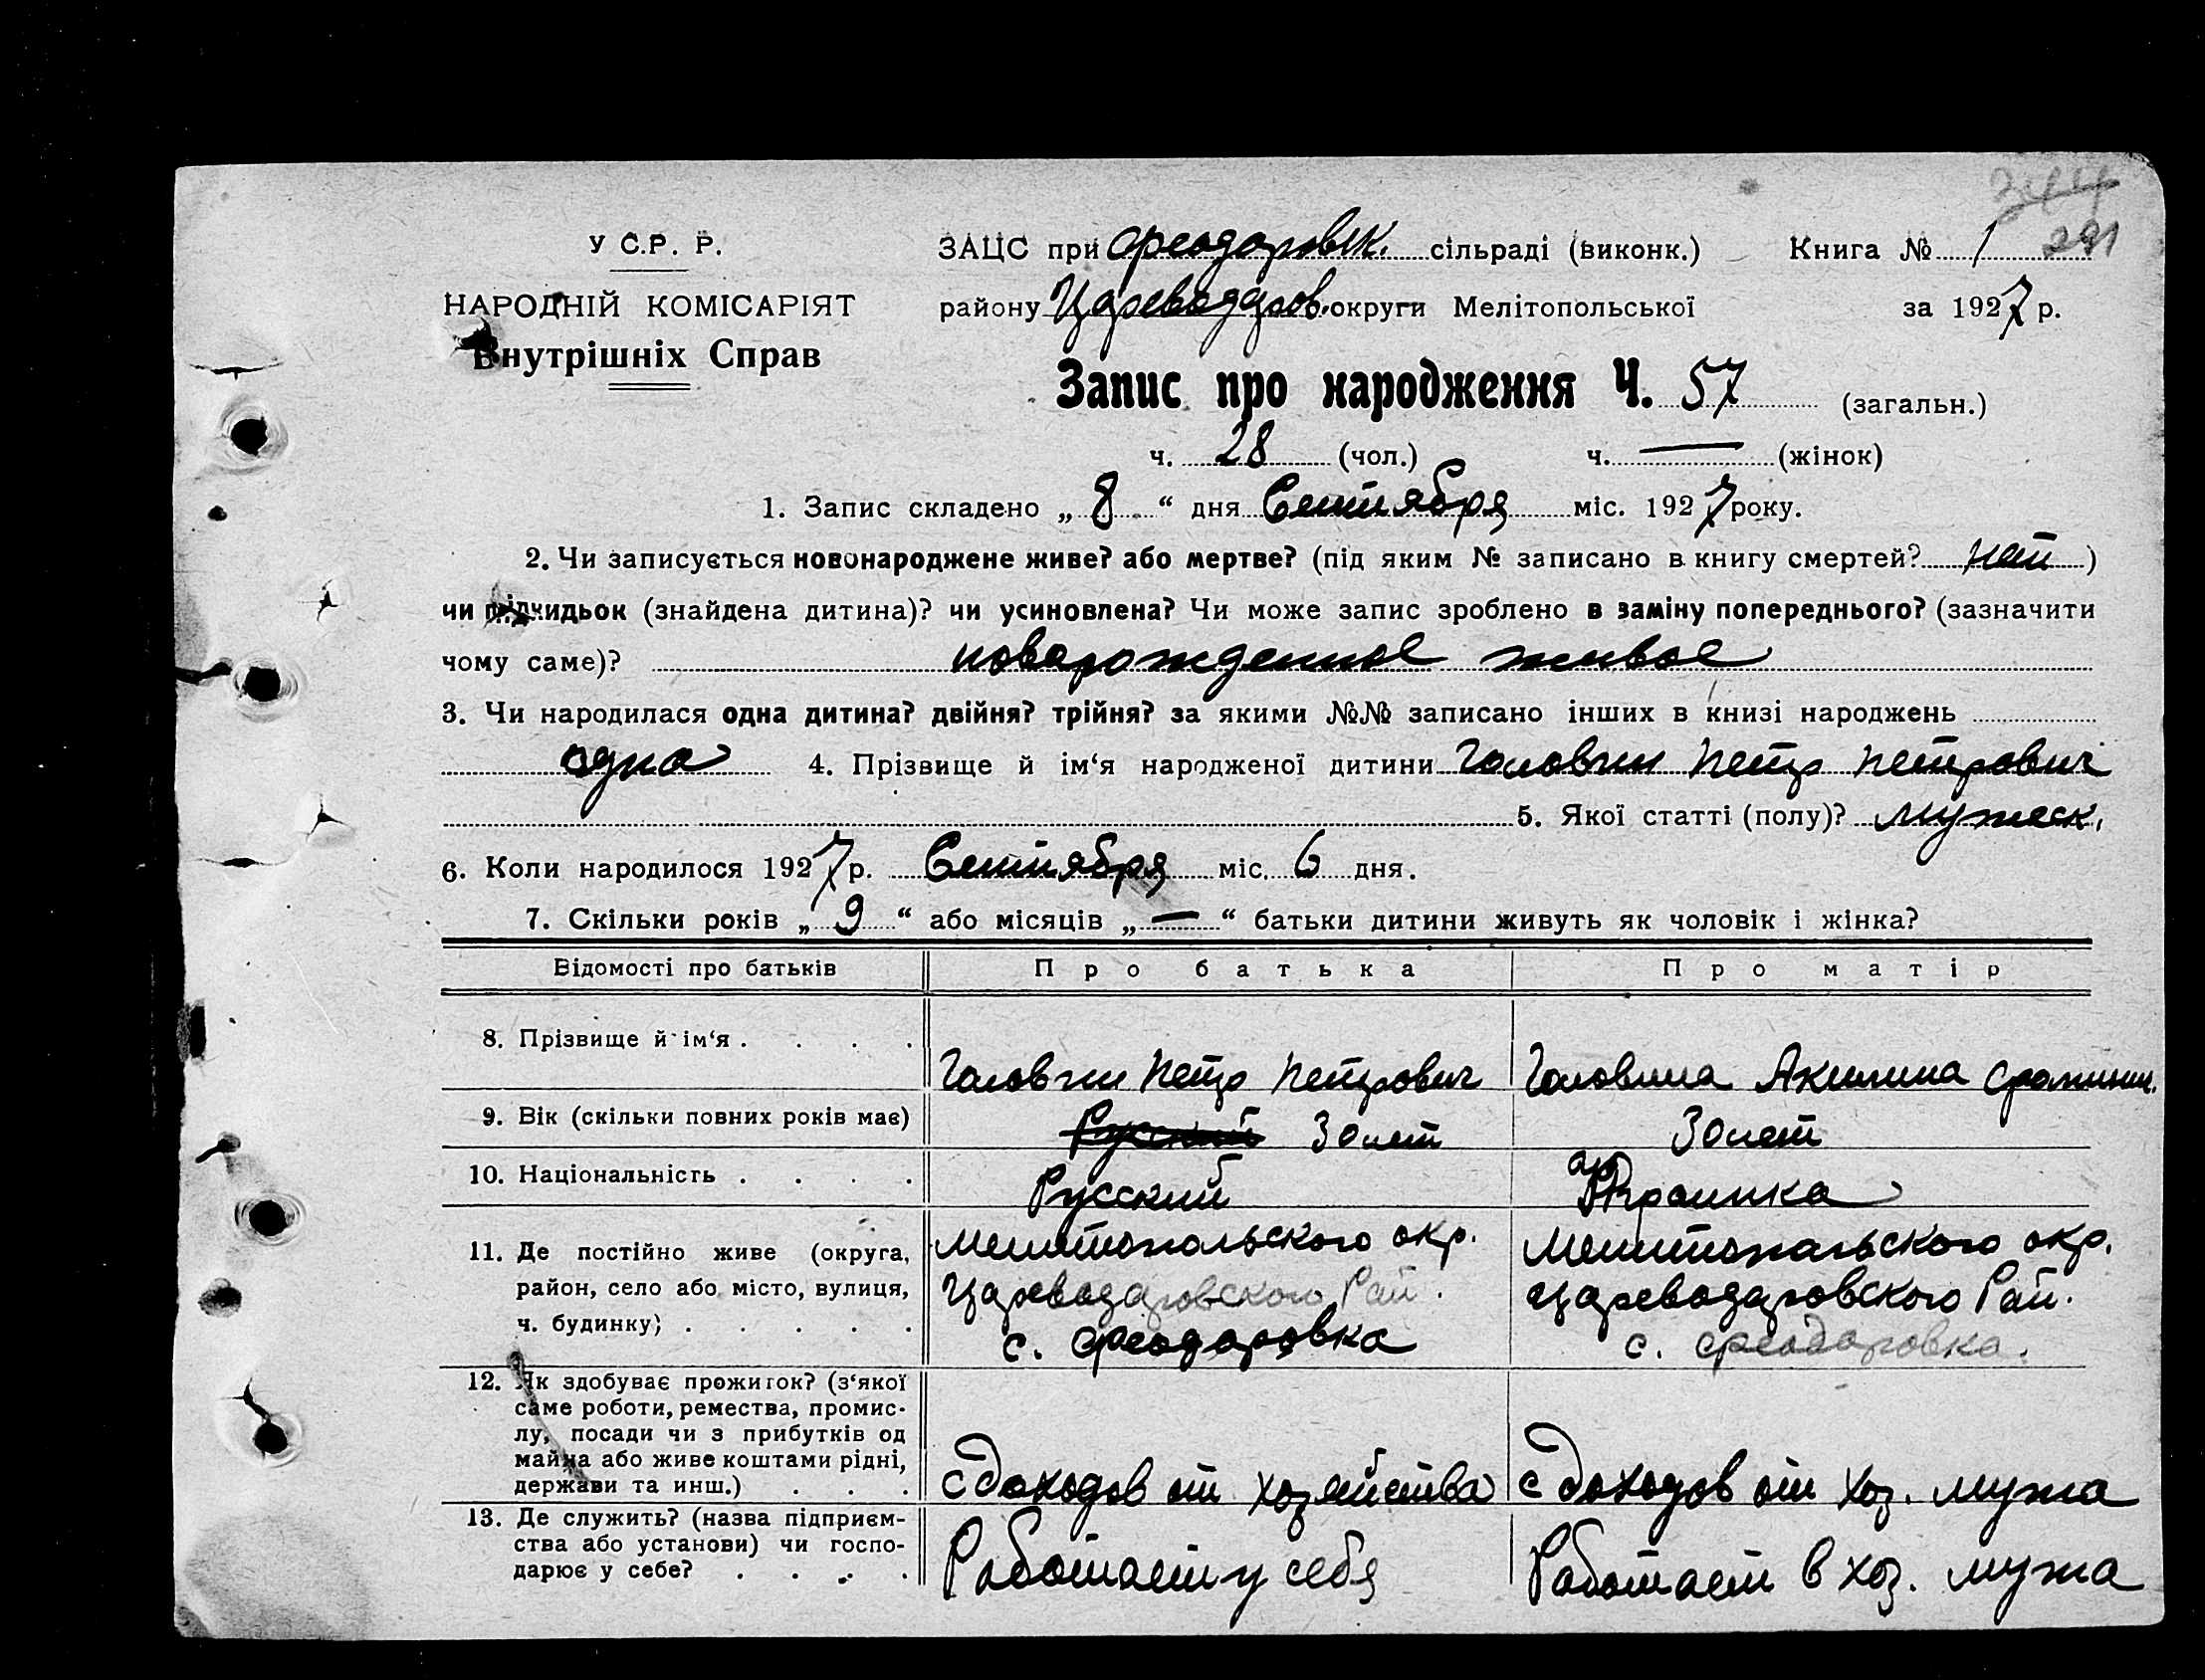 744
291
У С.Р. Р.
ЗАЦС при Феодоровск. сільраді (виконк.) Книга № 1
НАРОДНІЙ КОМІСАРІЯТ
району Цареводаров. округи Мелітопольської за 1927 р.
Внутрішніх Справ
Запис про народження Ч. 57 (загальн.)
ч. 28 (чол.) ч. — (жінок)
1. Запис складено „ 8 “ дня Сентября міс. 1927 року.
2. Чи записується новонароджене живе? або мертве? (під яким № записано в книгу смертей? нет )
чи підкидьок (знайдена дитина)? чи усиновлена? Чи може запис зроблено в заміну попереднього? (зазначити
чому саме)? новорожденное живое
3. Чи народилася одна дитина? двійня? трійня? за якими №№ записано інших в книзі народжень
одна 4. Прізвище й ім‘я народженої дитини Головин Петр Петрович
5. Якої статті (полу)? мужеск.
6. Коли народилося 1927 р. Сентября міс. 6 дня.
7. Скільки років „ 9 “ або місяців „ — “ батьки дитини живуть як чоловік і жінка?
Відомості про батьків Про батька Про матір
8. Прізвище й ім‘я . . . . Головин Петр Петрович Головина Акилина
9. Вік (скільки повних років має) Русский 30 лет 30 лет
10. Національність . . . . Русский Украинка
11. Де постійно живе (округа, Мелитопольского окр. Мелитопольского окр.
район, село або місто, вулиця, Цареводаровского Рай. Цареводаровского Рай.
ч. будинку) . . . . . с. Феодоровка с. Феодоровка.
12. Як здобуває прожиток? (з‘якої
саме роботи, ремества, промис-
лу, посади чи з прибутків од
майна або живе коштами рідні,
держави та инш.) . . . С доходов от хозяйства С доходов от хоз. мужа
13. Де служить? (назва підприєм-
ства або установи) чи госпо-
дарює у себе? . . . . Работает у себя Работает в хоз. мужа